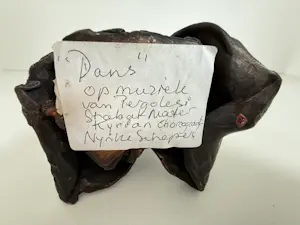 "Dans"
op muziek
van Pergolesi
Stabat Mater
Kyrian choreograaf
Nynke Schepers